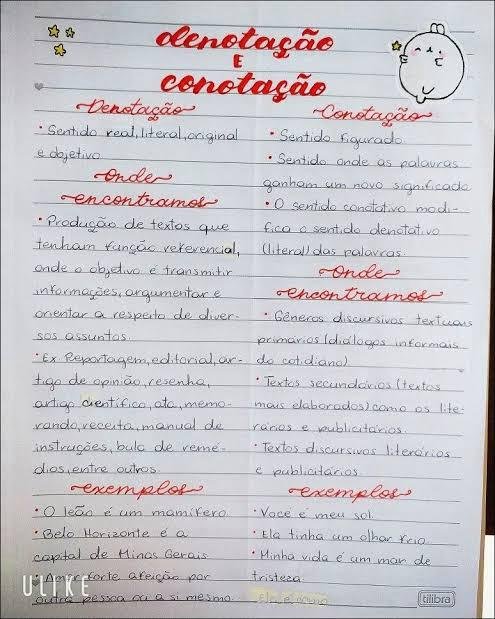 denotação
E
conotação
Denotação
• Sentido real, literal, original
e objetivo
Onde
encontramos
• Produção de textos que
tenham função referencial,
onde o objetivo é transmitir
informações, argumentar e
orientar a respeito de diver-
sos assuntos.
• Ex Reportagem, editorial, ar-
tigo de opinião, resenha,
artigo científico, ata, memo-
rando, receita, manual de
instruções, bula de remé-
dios, entre outros.
exemplos
• O leão é um mamífero.
• Belo Horizonte é a
capital de Minas Gerais
• Amor: forte afeição por
outra pessoa ou a si mesmo.
Conotação
• Sentido figurado
• Sentido onde as palavras
ganham um novo significado
• O sentido conotativo modi-
fica o sentido denotativo
(literal) das palavras.
Onde
encontramos
• Gêneros discursivos textuais
primários (diálogos informais
do cotidiano)
• Textos secundários (textos
mais elaborados) como os lite-
rários e publicitários.
• Textos discursivos literários
e publicitários.
exemplos
• Você é meu sol.
• Ela tinha um olhar frio.
• Minha vida é um mar de
tristeza.
ULIKE
tilibra